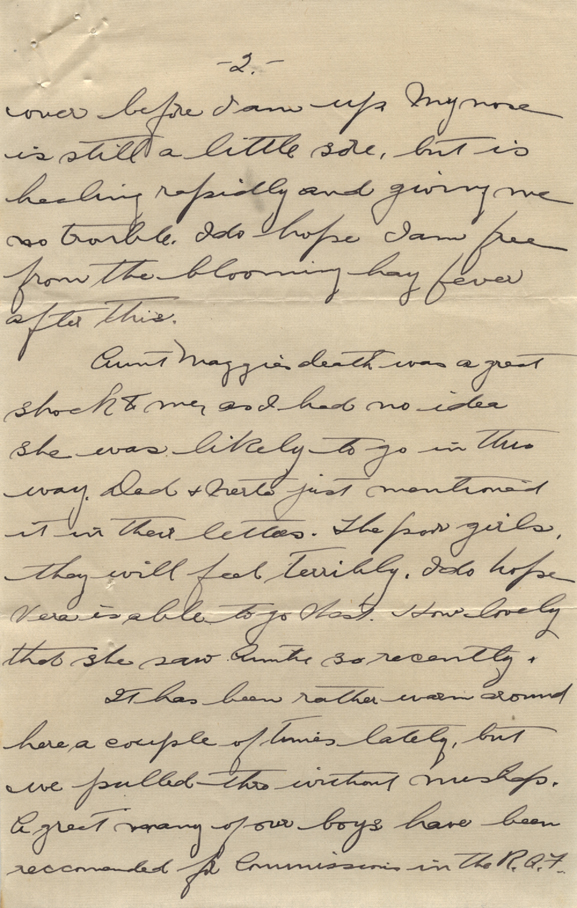 -2.-
over before I am up. My nose
is still a little sore, but is
healing rapidly and giving me
no trouble. I do hope I am free
from the blooming hay fever
after this.
Aunt Maggie's death was a great
shock to me, as I had no idea
she was likely to go in this
way. Dad & just mentioned
it in their letters. The poor girls,
they will feel terribly. I do hope
Vera is able to go. How lovely
that she saw Auntie so recently.
It has been rather warm around
here a couple of times lately, but
we pulled thro without mishap.
A great many of our boys have been
reccomended for Commissions in the R.A.F.